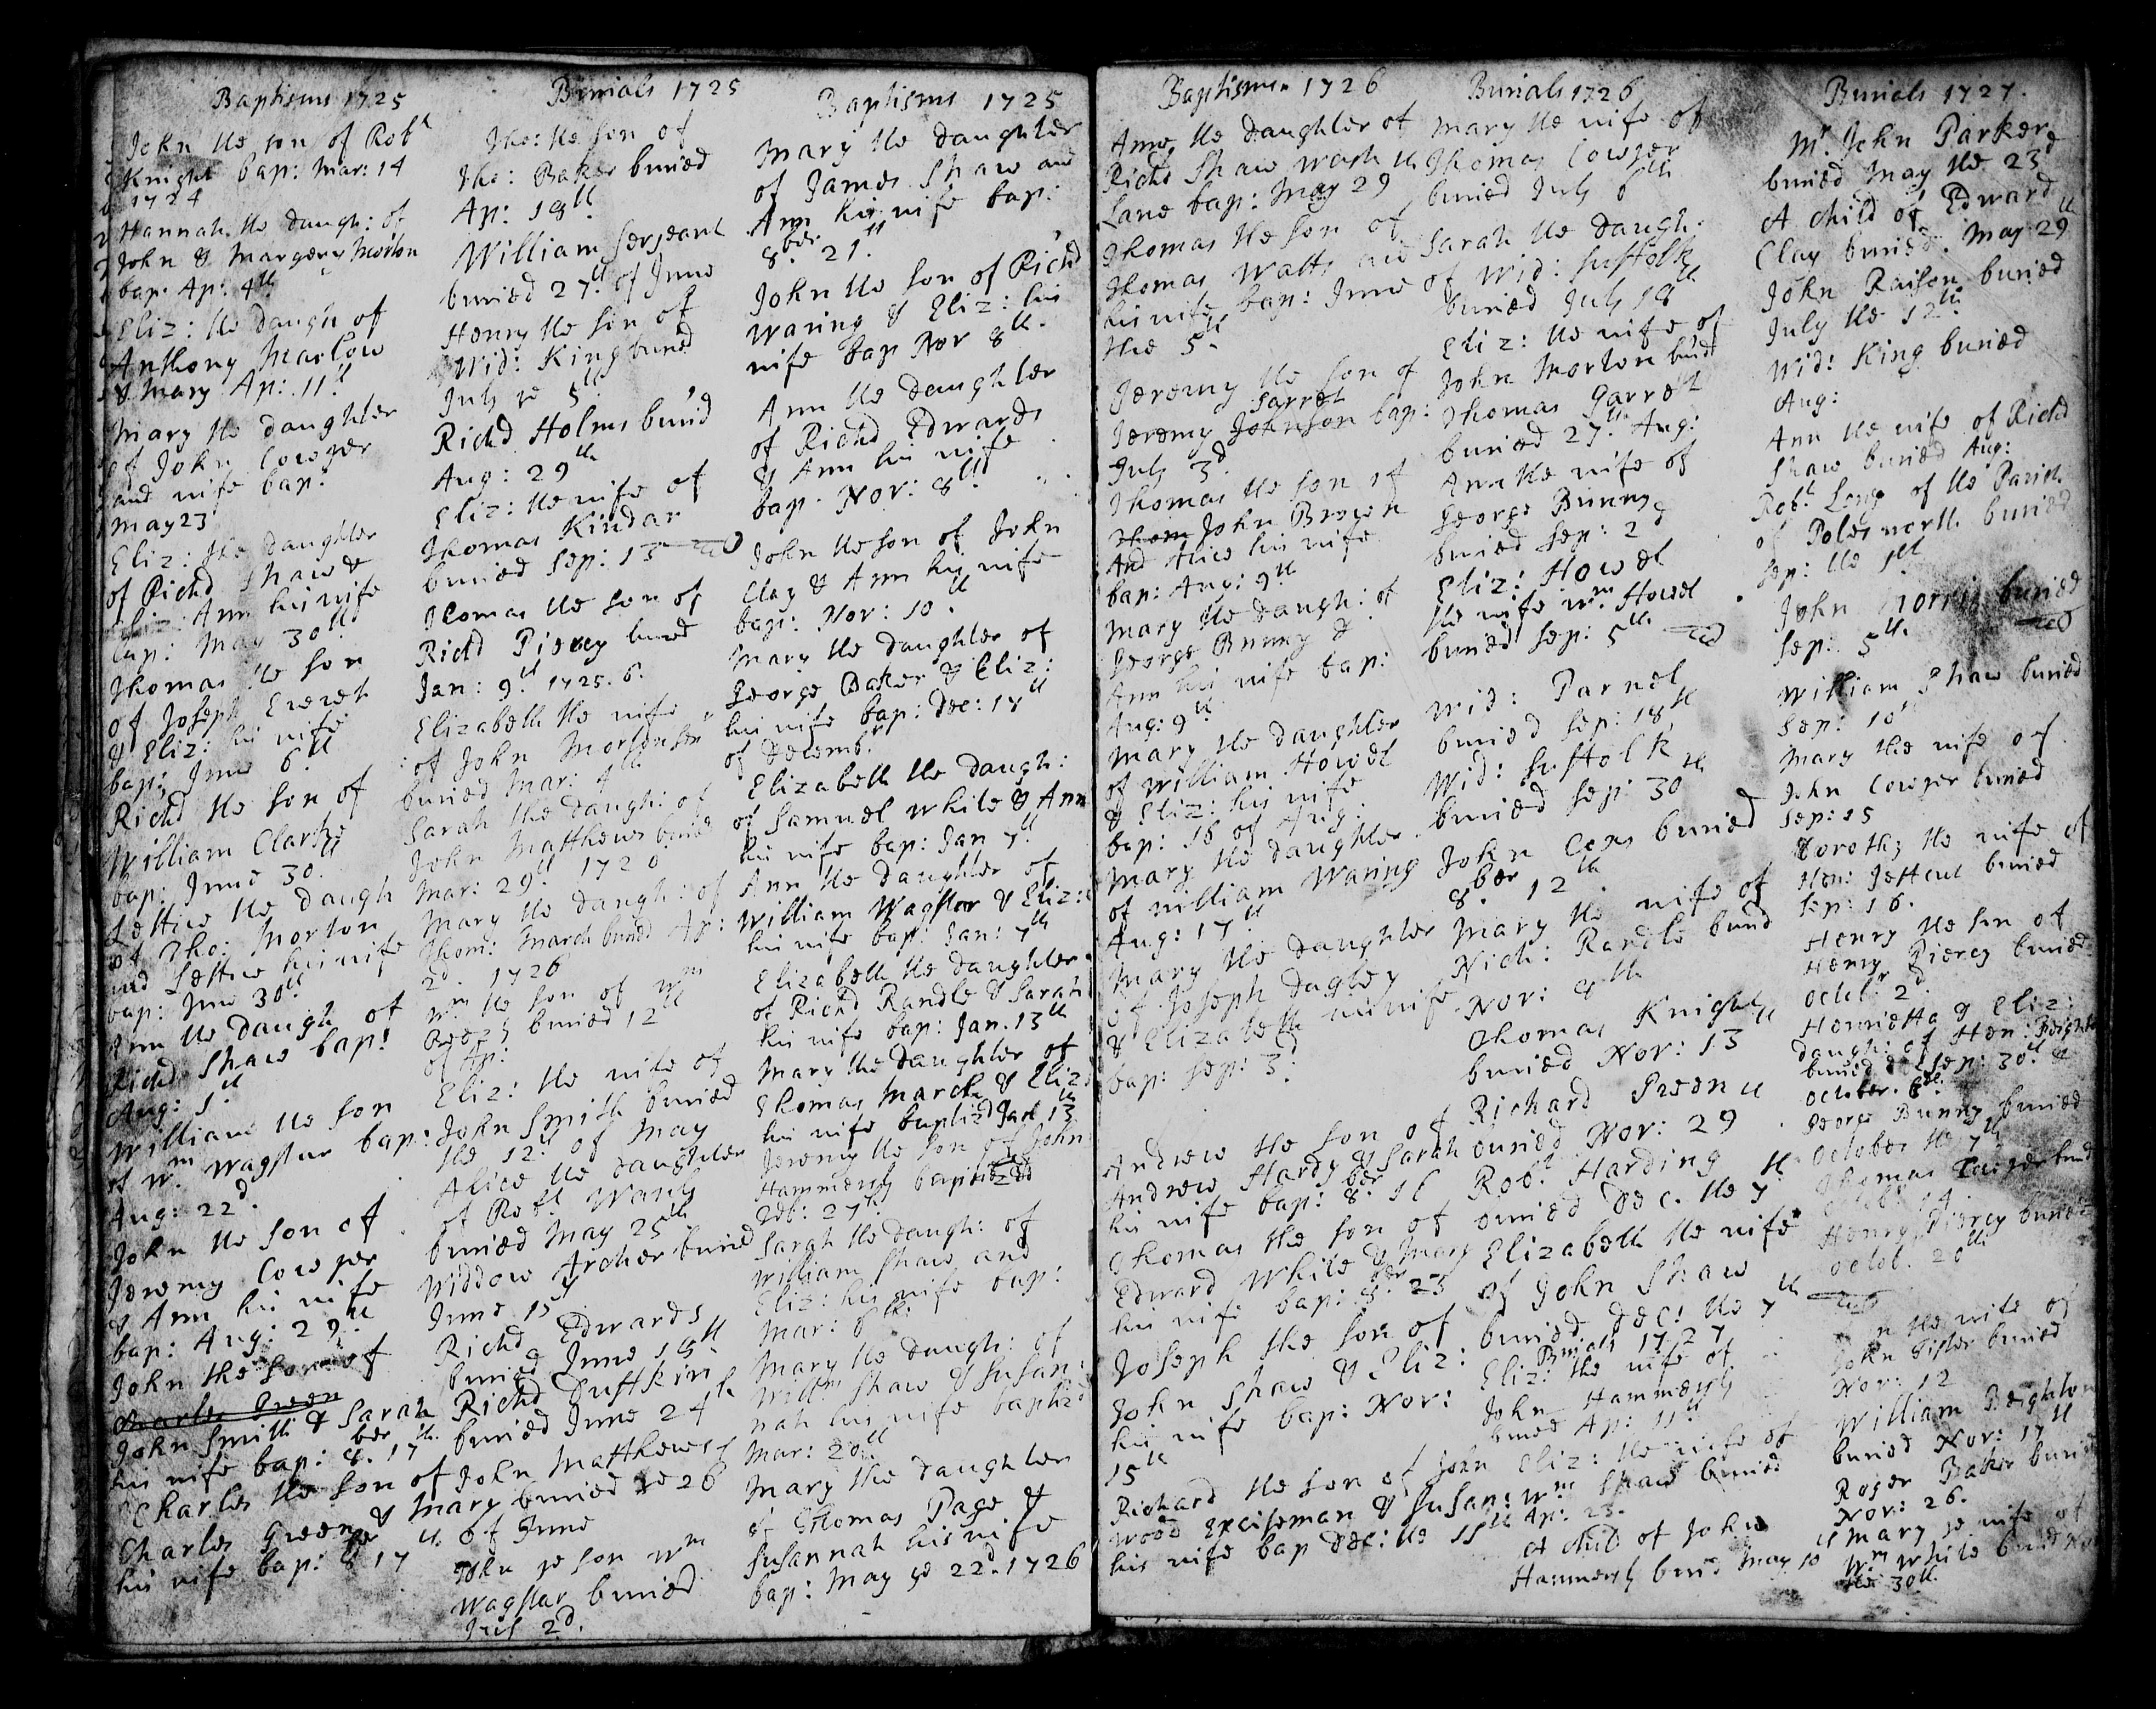 Baptisms 1725
John the son of Robt
Knight bap: Mar: 14
1724
Hannah the daugh: of
John & Margery Morton
bap: Ap: 4th
Eliz: the daugh of
Anthony Marlow
& Mary Ap: 11th
Mary the daughter
of John Cowper
and wife bap:
May 23
Eliz: the daughter
of Richd Shaw &
Ann his wife
bap: May 30th
Thomas the son
of Joseph Everet
& Eliz: his wife
bap: June 6th
Richd the son of
William Clarke
bap: June 30.
Lettice the daugh
of Tho: Morton
and Lettice his wife
bap: June 30th
Ann the daugh of
Richd Shaw bap:
Aug: 1st
William the son
of Wm Wagstar bap:
Aug: 22d.
John the son of
Jeremy Cowper
& Ann his wife
bap: Aug: 29th
John the son of
Charles Green
John Smith & Sarah
his wife bap: 8ber 17th
Charles the son of
Charles Green & Mary
his wife bap: 8ber 17th
Burials 1725
Tho: the son of
Tho: Baker buried
Ap: 18th
William Sergeant
buried 27th of June
Henry the son of
Wid: King buried
July ye 5th
Richd Holms buried
Aug: 29th
Eliz: the wife of
Thomas Kindar
buried Sep: 13
Thomas the son of
Richd Piercy buried
Jan: 9th 1725.6.
Elizabeth the wife
of John Morton
buried Mar: 4th
Sarah the daugh: of
John Matthews buried
Mar: 29th 1726
Mary the daugh: of
Thom: March buried Ap:
2d. 1726
Wm the son of Wm
buried 12th
of Ap:
Eliz: the wife of
John Smith buried
the 12th of May
Alice the daughter
of Robt
buried May 25th
Widdow Archer buried
June 15
Richd Edwards
buried June 18th
Richd
buried June 24th
John Matthews
buried ye 26
of June
John ye son Wm
Wagstar buried
July 2d.
Baptisms 1725
Mary the daughter
of James Shaw and
Ann his wife bap:
8ber 21st
John the son of Richd
Waring & Eliz: his
wife bap Nor 8th.
Ann the daughter
of Richd Edwards
& Ann his wife
bap. Nor: 8th
John the son of John
Clay & Ann his wife
bap: Nor: 10th
Mary the daughter of
George Baker & Eliz:
his wife bap: Dec: 18
of Decemb:
Elizabeth the daugh:
of Samuel White & Ann
his wife bap: Jan 7th
Ann the daughter of
William Wagstar & Eliz:
his wife bap: Jan: 7th
Elizabeth the daughter
of Richd Randle & Sarah
his wife bap: Jan. 13th
Mary the daughter of
Thomas March & Eliz:
his wife baptizd Jan 13th
Jeremy the son of John
Hammersly baptized
Feb: 27th
Sarah the daugh: of
William Shaw and
Eliz: his wife bap:
Mar: 6th
Mary the daugh: of
Willm Shaw & Susan:
nah his wife baptizd
Mar: 20th
Mary the daughter
of Thomas Page &
Susannah his wife
bap: May ye 22d. 1726
Baptisms 1726
Anne the daughter of
Richd Shaw Wash
Lane bap: May 29th
Thomas the son of
Thomas Watts and
his wife bap: June
the 5th
Jeremy the son of
Jarret
Jeremy Johnson bap:
July 3d
Thomas the son of
Thom John Brown
And Alice his wife
bap: Aug: 9th
Mary the daugh: of
George Bunny &
Ann his wife bap:
Aug: 9th
Mary the daughter
of William Howet
& Eliz: his wife
bap: 16 of Aug:
Mary the daughter
of William Waring
Aug: 17th
Mary the daughter
of Joseph Dagley
& Elizabeth his wife
bap: Sep: 3d.
Andrew the son of
Andrew Hardy & Sarah
his wife bap: 8ber 16
Thomas the son of
Edward White & Mary
his wife bap: 8ber 23
Joseph the son of
John Shaw & Eliz:
his wife bap: Nor:
15th
Richard the son of John
Wood Exciseman & Susan:
his wife bap Dec: the 11th
Burials 1726
Mary the wife of
Thomas Cowper
buried July 6th
Sarah the daugh:
of Wid: Suffolk
buried July 18th
Eliz: the wife of
John Morton burd
Thomas Garret
buried 27th Aug:
Ann the wife of
George Bunny
buried Sep: 2d
Eliz: Howet
the wife Wm Howet
buried Sep: 5th
Wid: Parnel
buried Sep: 18th
Wid: Suffolk
buried Sep: 30th
John Cox buried
8ber 12th
Mary the wife of
Nich: Randle burid
Nor: 8th
Thomas Knight
buried Nor: 13th
Richard Green
buried Nor: 29th
Robt Harding
buried Dec. the 7th
Elizabeth the wife
of John Shaw
buried Dec: the 7th
Burials 1727
Eliz: the wife of
John Hammersly
buried Ap: 11th
Eliz: the wife of
Wm Shaw buried
Ap: 23.
A child of John
Hammersly burid May 10th
Burials 1727.
Mr. John Parker
buried May the 23d
A child of Edward
Clay buried. May 29th
John Raison buried
July the 12th
Wid: King buried
Aug:
Ann the wife of Richd
Shaw buried Aug:
Robt Long of the Parish
of Polesworth buried
Sep: the 1st
John Morris buried
Sep: 5th.
William Shaw buried
Sep: 10th
Mary the wife of
John Cowper buried
Sep: 15
Dorothy the wife of
Hen: buried
Sep: 16.
Henry the son of
Henry Piercy buried
Octobr 2d.
Henrietta & Eliz:
daugh: of Hen: Beighton
buried Sep: 30th &
October. 6th.
George Bunny buried
October the 7th
Thomas Cowper burid
14.
Henry Piercy buried
Octob. 20th
the wife of
John Sister buried
Nor: 12
William Beighton
buried Nor: 17th
Roger Baker buried
Nor: 26.
Mary ye wife of
Wm White burid
the 30th.